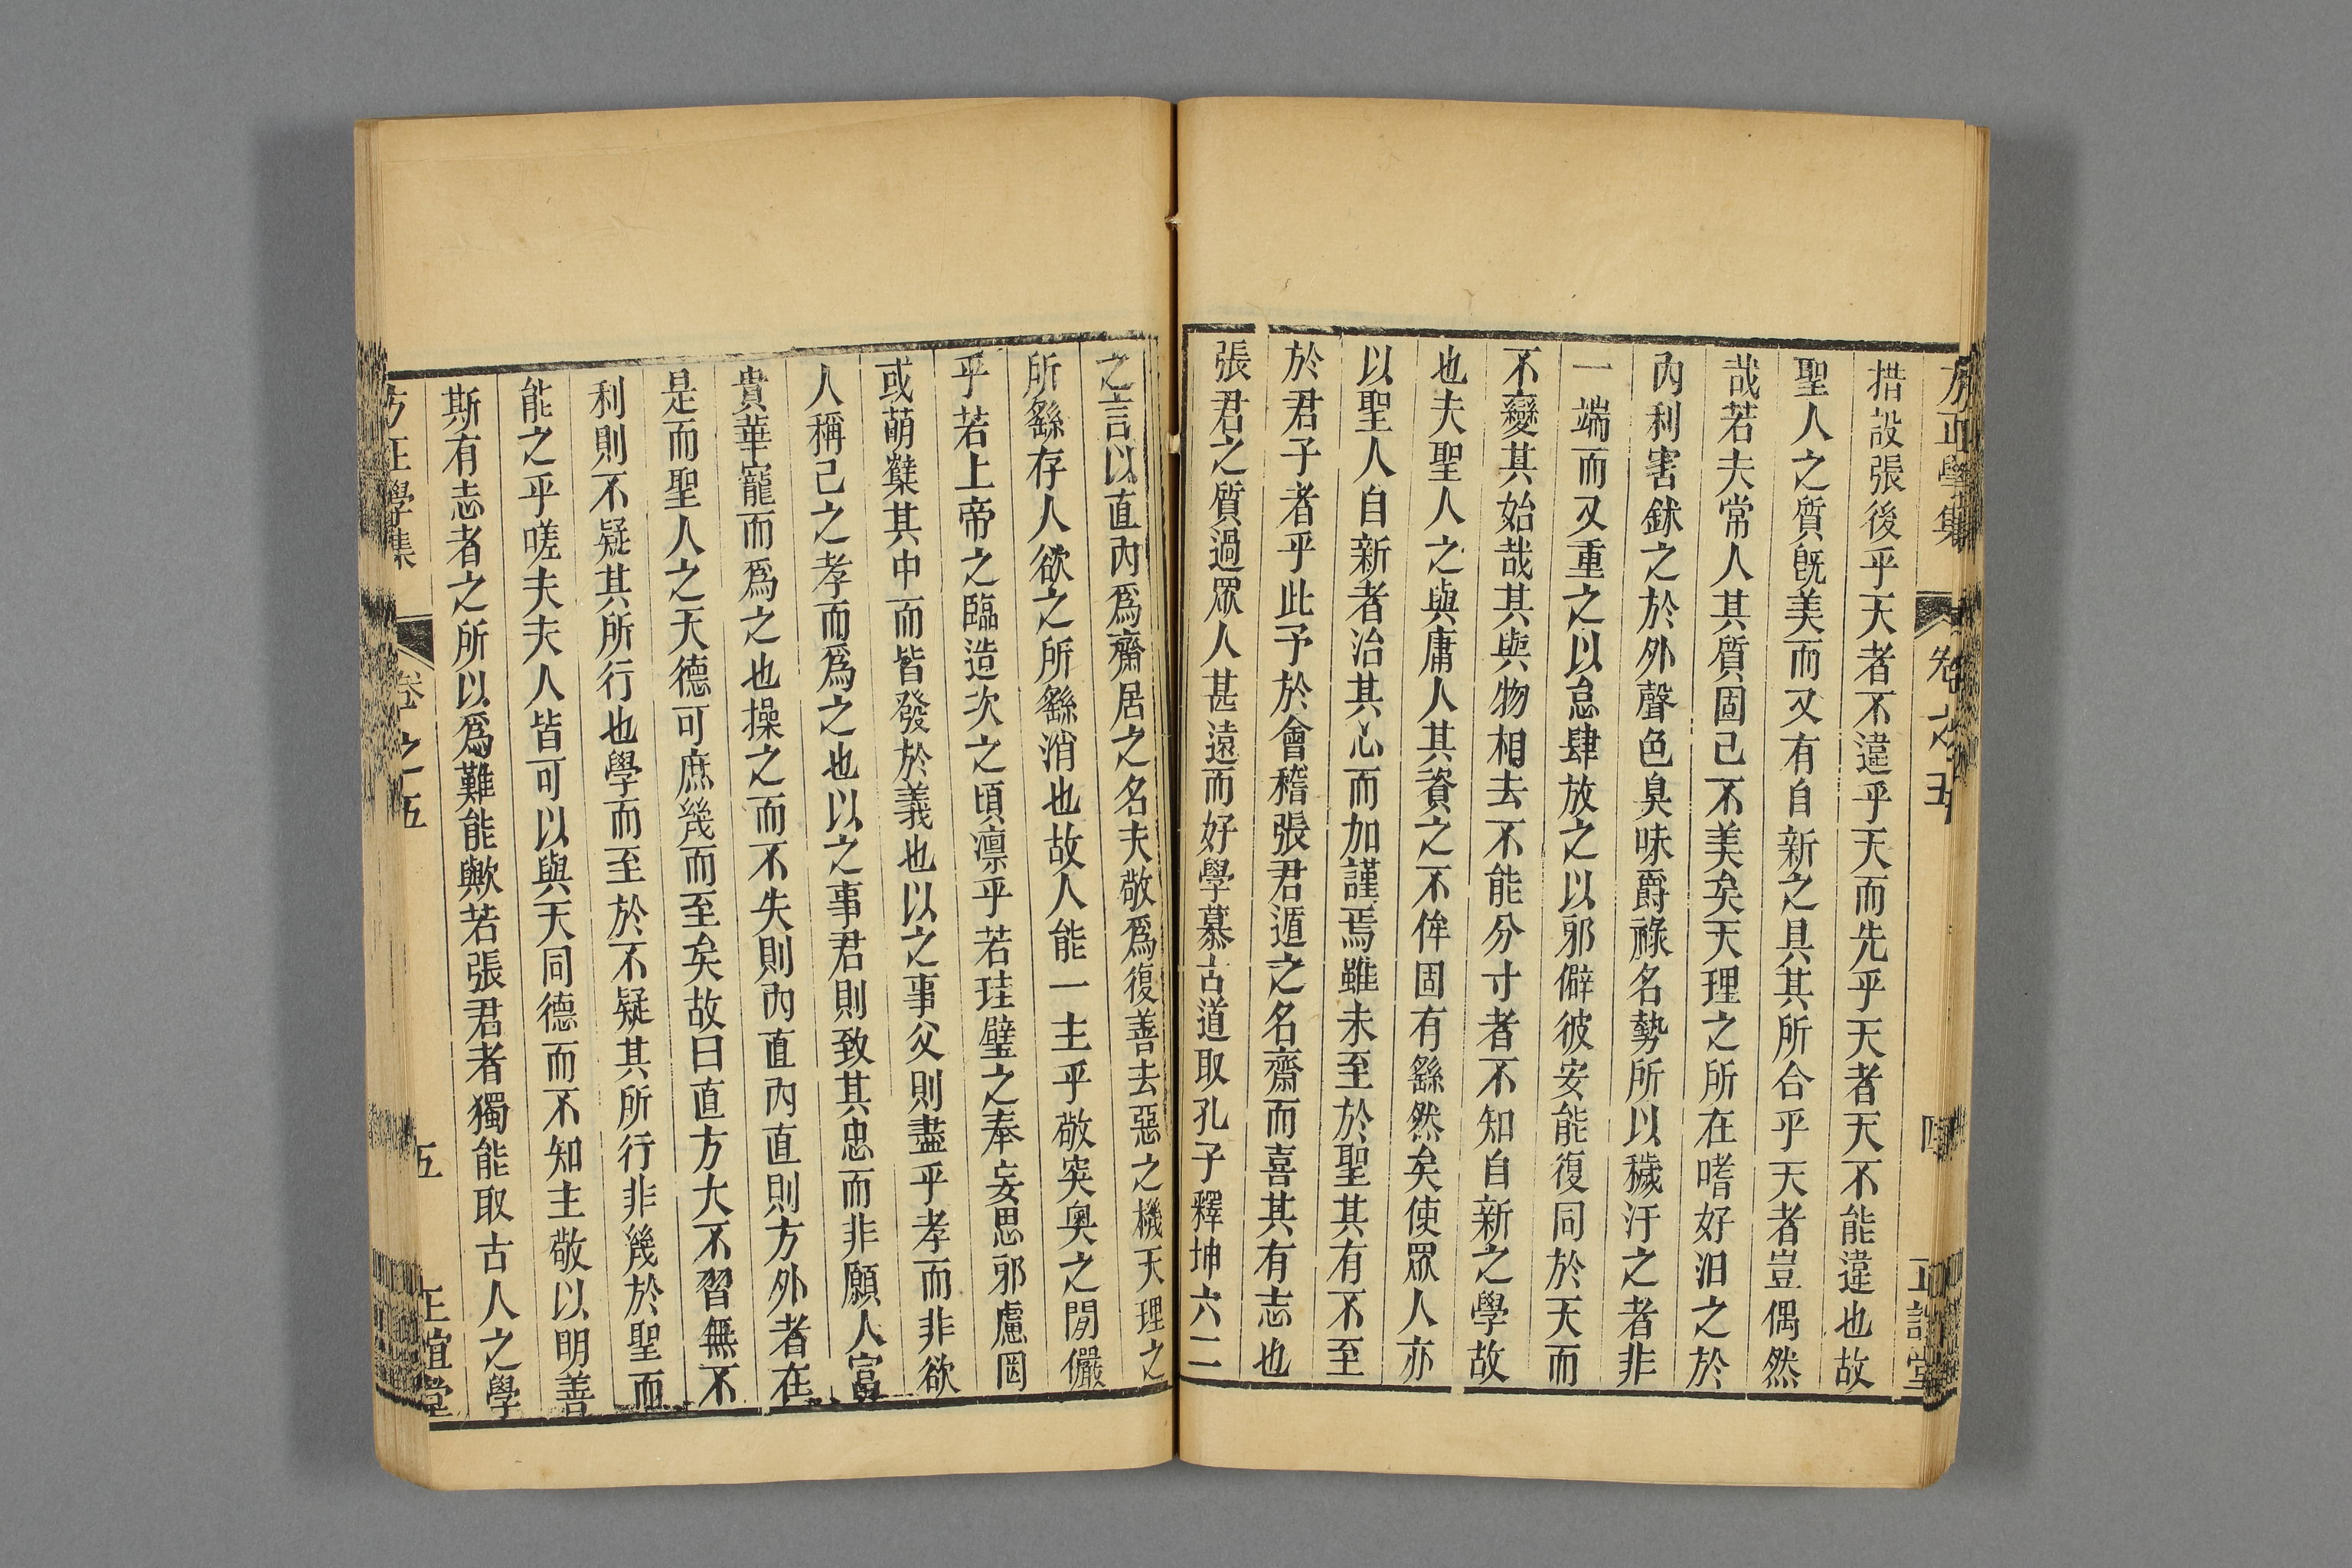 方正學集 卷之五 四 正誼堂
措設張後乎天者不違乎天而先乎天者天不能違也故
聖人之質旣美而又有自新之具其所合乎天者豈偶然
哉若夫常人其質固已不美矣天理之所在嗜好汨之於
內利害鉥之於外聲色臭味爵祿名勢所以穢汙之者非
一端而又重之以怠肆放之以邪僻彼安能復同於天而
不變其始哉其與物相去不能分寸者不知自新之學故
也夫聖人之與庸人其資之不侔固有繇然矣使眾人亦
以聖人自新者治其心而加謹焉雖未至於聖其有不至
於君子者乎此予於會稽張君遁之名齋而喜其有志也
張君之質過眾人甚遠而好學慕古道取孔子釋坤六二
之言以直內爲齋居之名夫敬爲復善去惡之機天理之
所繇存人欲之所繇消也故人能一主乎敬突奧之閒儼
乎若上帝之臨造次之頃凛乎若珪璧之奉妄思邪慮罔
或萌櫱其中而皆發於義也以之事父則盡乎孝而非欲
人稱己之孝而爲之也以之事君則致其忠而非願人富
貴華寵而爲之也操之而不失則內直內直則方外者在
是而聖人之天德可庶幾而至矣故曰直方大不習無不
利則不疑其所行也學而至於不疑其所行非幾於聖而
能之乎嗟夫夫人皆可以與天同德而不知主敬以明善
斯有志者之所以爲難能歟若張君者獨能取古人之學
方正學集 卷之五 五 正誼堂